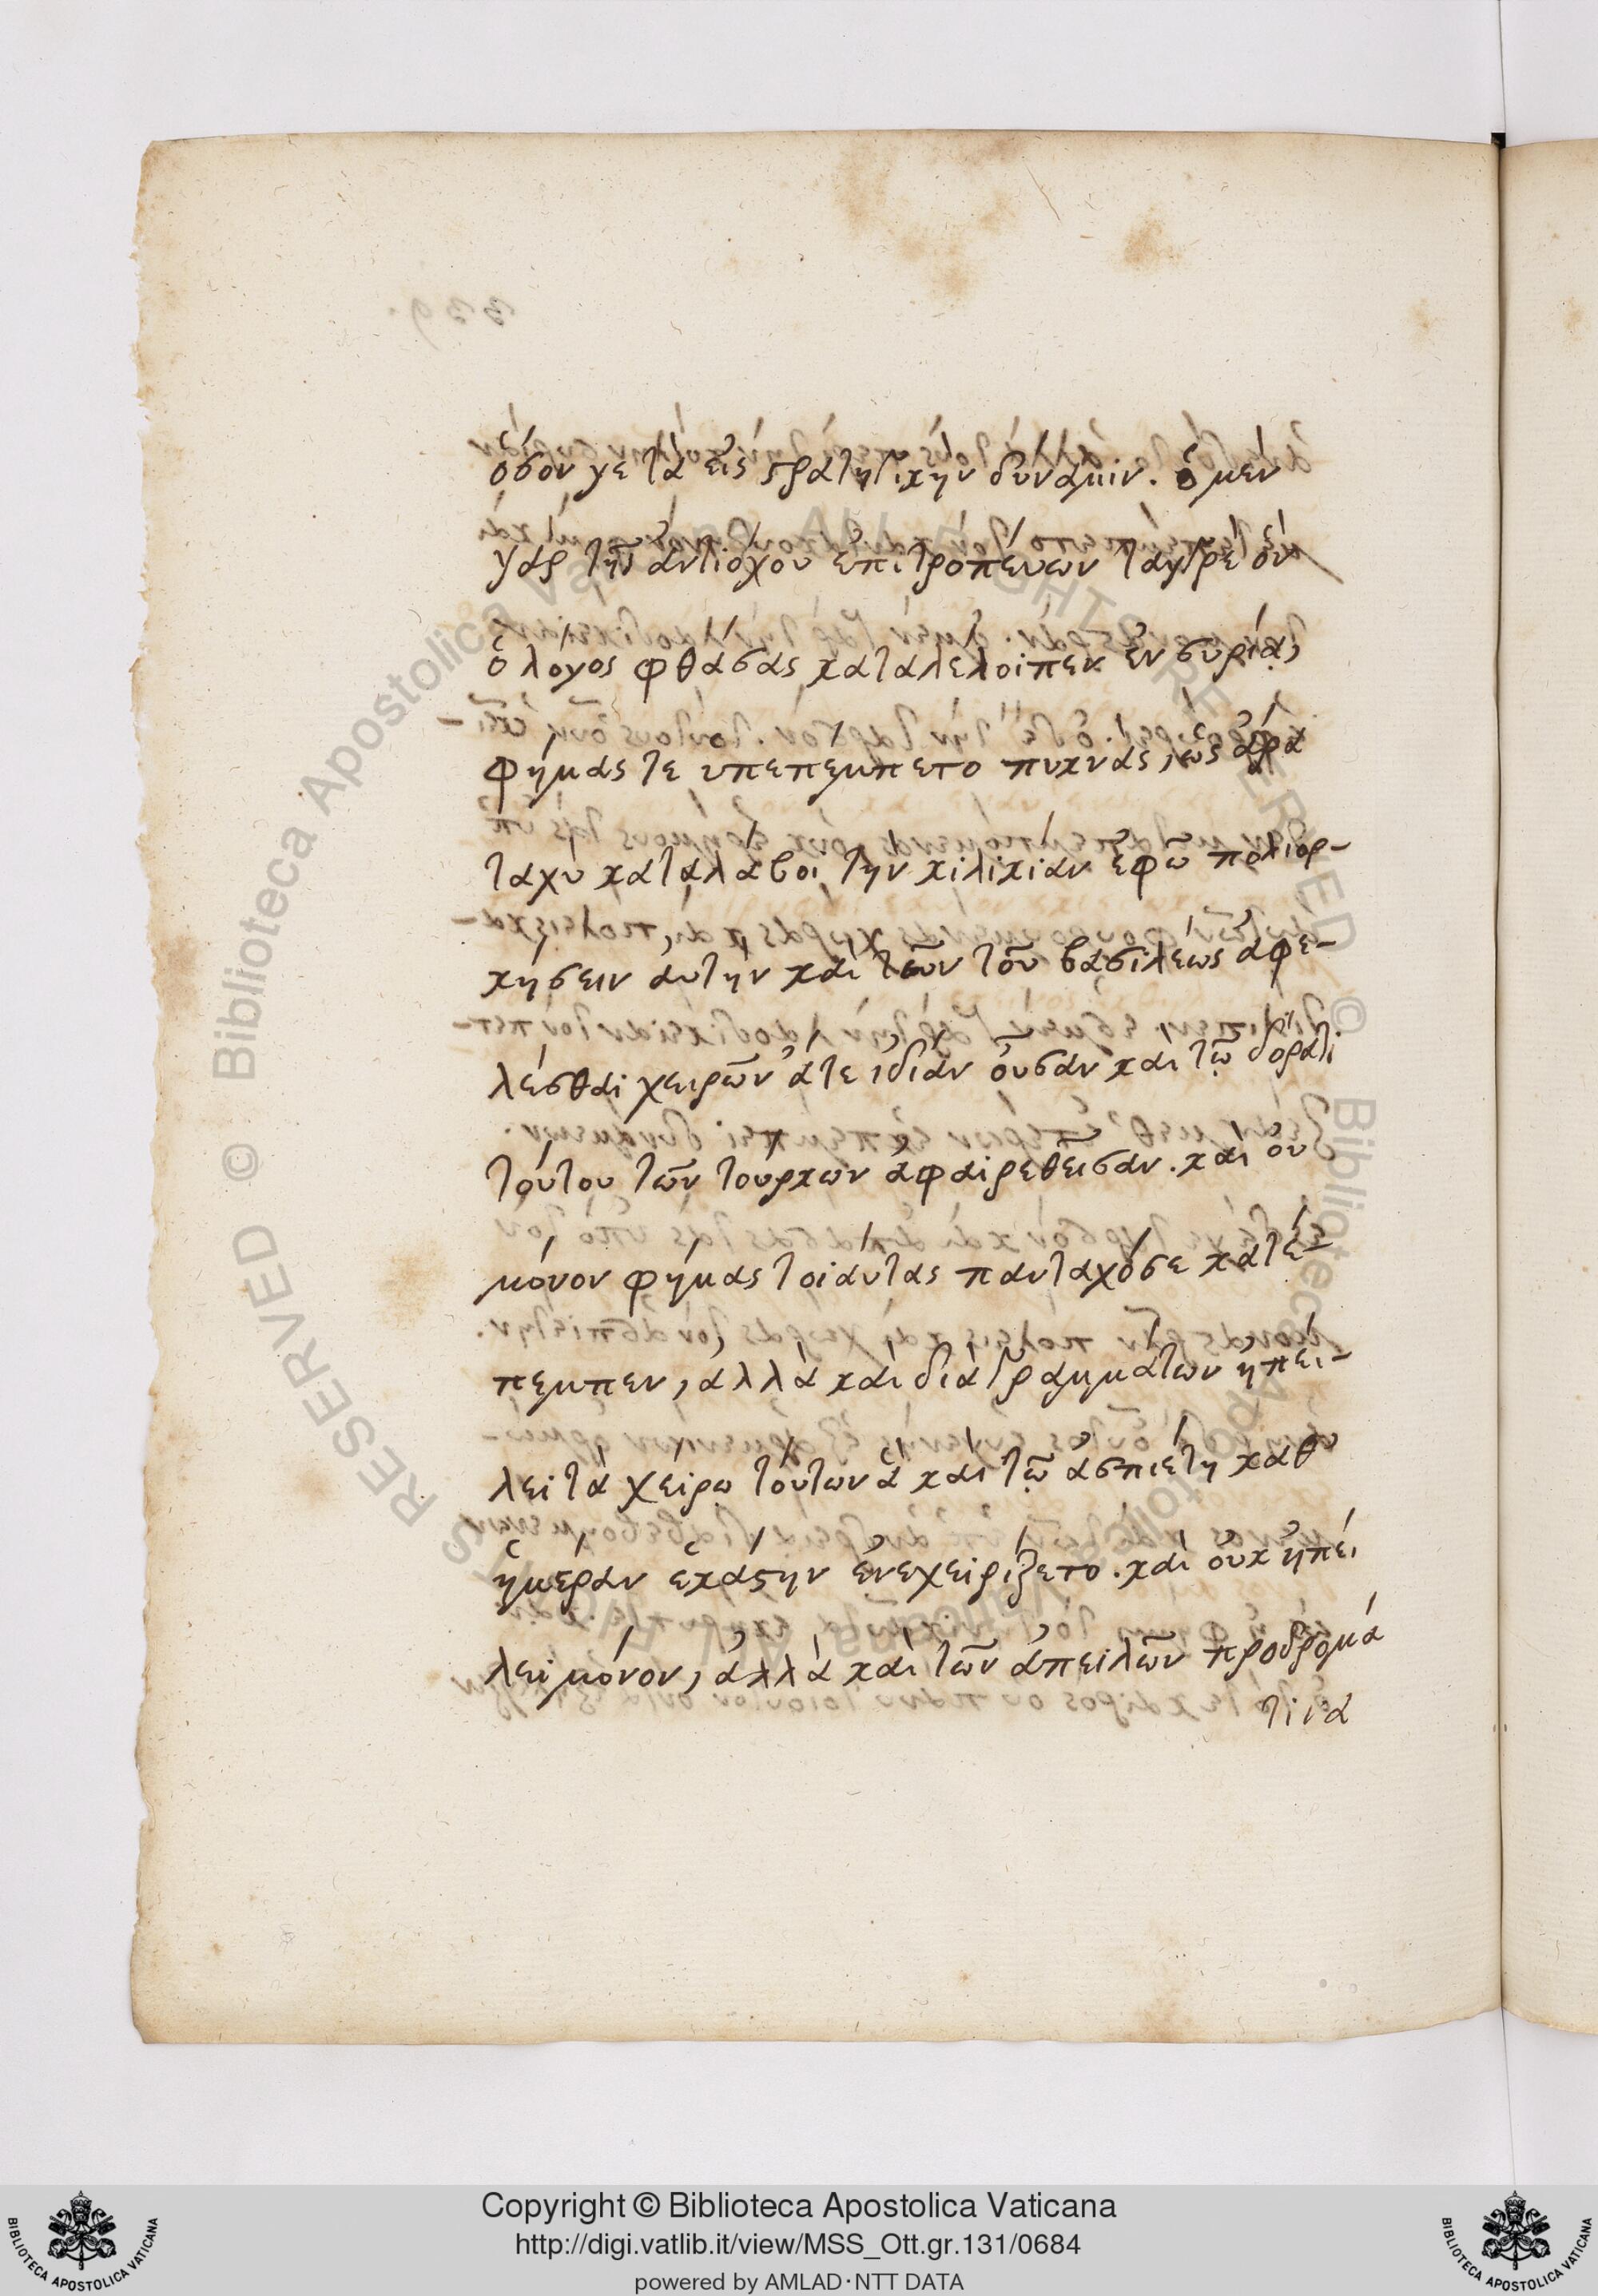 ὅσον γε τὰ εἰς στρατηγικὴν δύναμιν. ὁ μὲν
γὰρ τῆς ἀντιόχου ἐπιτροπεύων ταγγρὲ ὃν
ὁ λόγος φθάσας καταλέλοιπεν ἐν συρίᾳ,
φήμας τε ὑπεπέμπετο πυκνὰς, ὡς ἄρα
ταχὺ καταλάβοι τὴν κιλικίαν ἐφῶ πολιορ-
κήσειν αὐτὴν καὶ τῶν τοῦ βασιλέως ἀφε-
λέσθαι χειρῶν ἅτε ἰδίαν οὖσαν καὶ τῷ δόρατι
τούτου τῶν τούρκων ἀφαιρεθεῖσαν. καὶ οὐ
μόνον φήμας τοιαύτας πανταχόσε κατέ-
πεμπεν, ἀλλὰ καὶ διὰ γραμμάτων ἠπεί-
λει τὰ χείρω τούτων ἃ καὶ τῷ ἀσπιέτῃ καθ'
ἡμέραν ἑκάστην ἐνεχειρίζετο. καὶ οὐκ ἠπεί
λει μόνον, ἀλλὰ καὶ τῶν ἀπειλῶν προδρομά
τινα
Copyright © Biblioteca Apostolica Vaticana
http://digi.vatlib.it/view/MSS_Ott.gr.131/0684
powered by AMLAD·NTT DATA
BIBLIOTECA APOSTOLICA VATICANA
BIBLIOTECA APOSTOLICA VATICANA